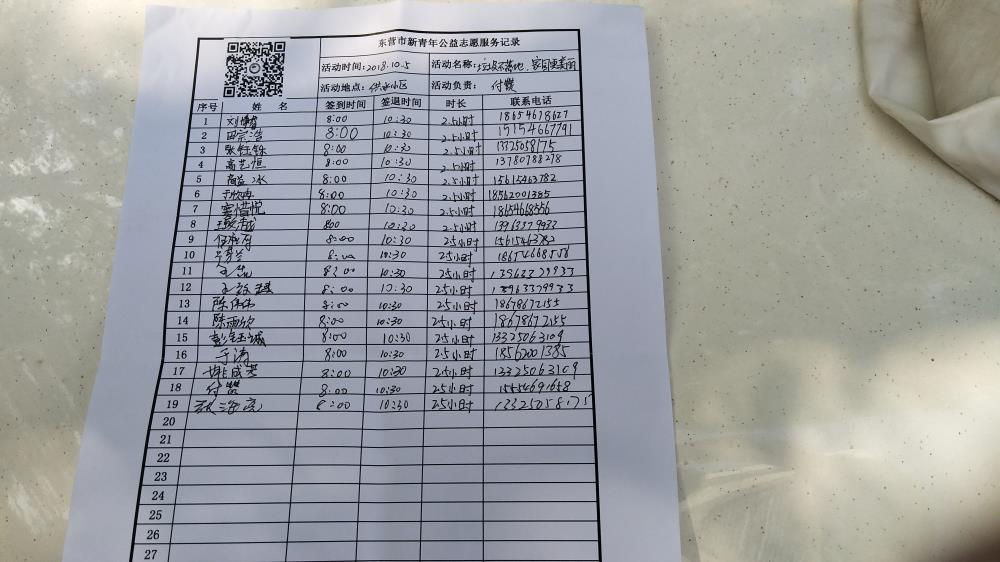 东营市新青年公益志愿服务记录
活动时间:2018.10.5 活动名称:垃圾不落地、家园更美丽
活动地点:供水小区 活动负责:付
序号 姓 名 签到时间 签退时间 时长 联系电话
1 刘 8:00 10:30 2.5小时 18654678627
2 田宗浩 8:00 10:30 2.5小时 15154667791
3 张钰铄 8:00 10:30 2.5小时 13325058175
4 高艺恒 8:00 10:30 2.5小时 13780788278
5 商益冰 8:00 10:30 2.5小时 15615463782
6 于欣冉 8:00 10:30 2.5小时 18562001385
7 8:00 10:30 2.5小时 18654668556
8 800 10:30 2.5小时 13963379933
9 8:00 10:30 25小时 15615463782
10 10:30 25小时 18654668556
11 8:00 10:30 25小时 13963379933
12 8:00 10:30 25小时 13963379933
13 陈伟伟 8:00 10:30 25小时 18678672155
14 陈雨欣 8:00 10:30 25小时 18678672155
15 彭钰诚 8:00 10:30 25小时 13325063109
16 于涛 8:00 10:30 2.5小时 18562001385
17 姚成芳 8:00 10:30 25小时 13325063109
18 付 8:00 10:30 25小时 15554691658
19 张海亮 8:00 10:30 25小时 13325058175
20
21
22
23
24
25
26
27